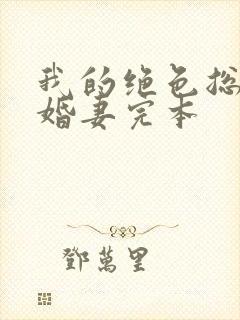 我的绝色总
婚妻完本
鄧萬里